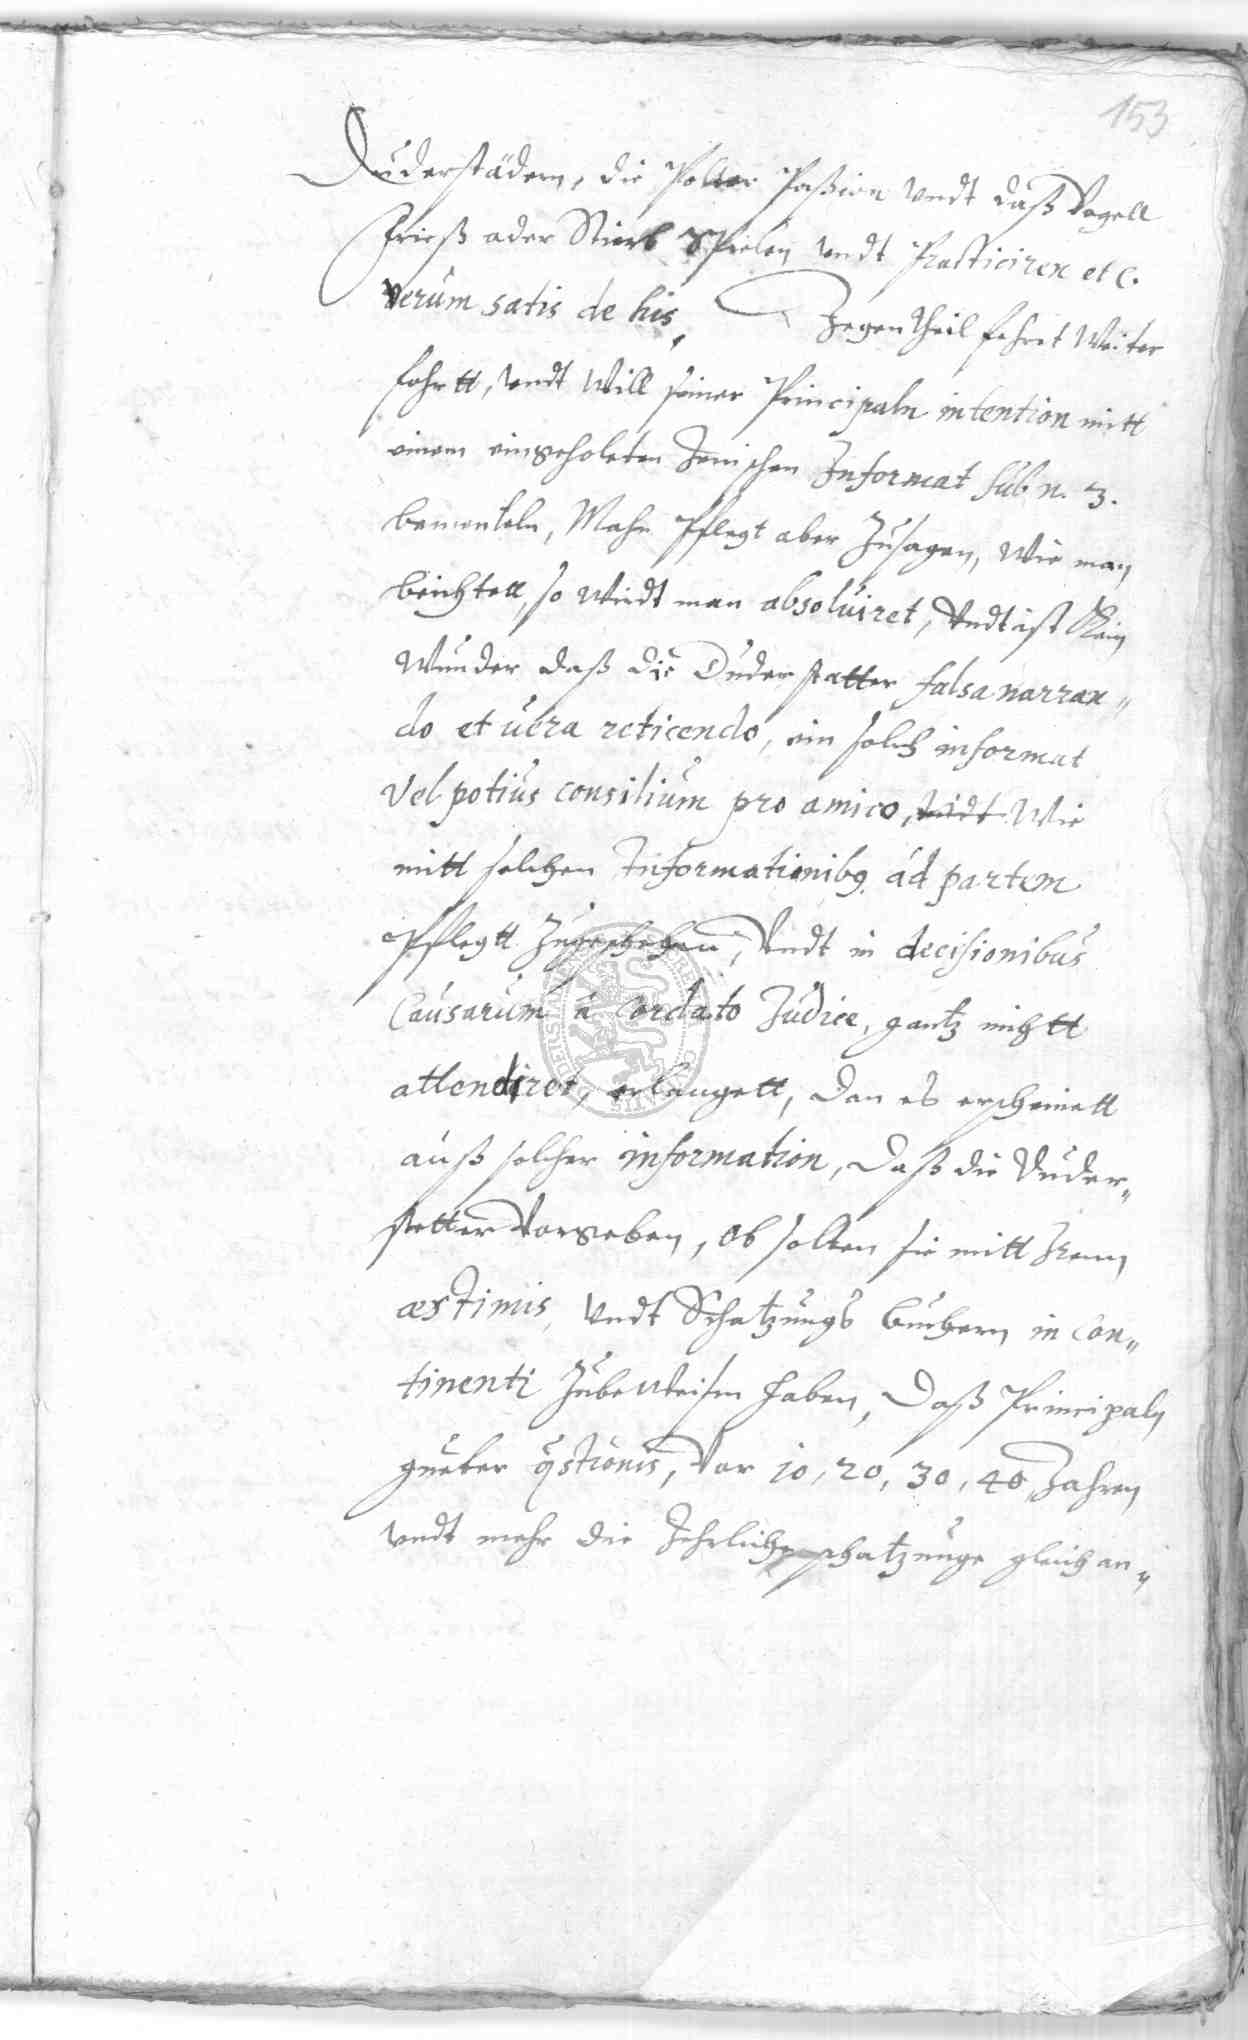 153
Duderstädern, die Polter Paßion vndt daß Vogell
friß oder Stirb Spielen vndt Practiciren etc.
verum satis de his, Gegentheil fehret weiter
fohrtt, vndt will seiner Principaln intention mitt
einem eingeholeten Jenischen Informat sub n. 3.
bementeln, Mahn Pflegt aber Zusagen, wie man
beichtett, so wirdt man absoluiret, vndt ist Kein
wunder daß die Duderstatter falsa narran„
do et uera reticendo, ein solch informat
vel potius consilium pro amico, wie
mitt solchen Informationibus ad partem
Pflegtt Zugeschehen, vndt in decisionibus
Causarum à Cordato Judice, gantz nichtt
attendiret, erlangett, dan es erscheinett
auß solcher information, daß die Duder„
stetter vorgeben, ob solten sie mitt Ihren
æstimis, vndt Schatzungs buchern in con„
tinenti Zubeweisen haben, daß Principaln
gueter qstionis, vor 10, 20, 30, 40 Jahren
vndt mehr die Jehrliche schatzunge gleich an„